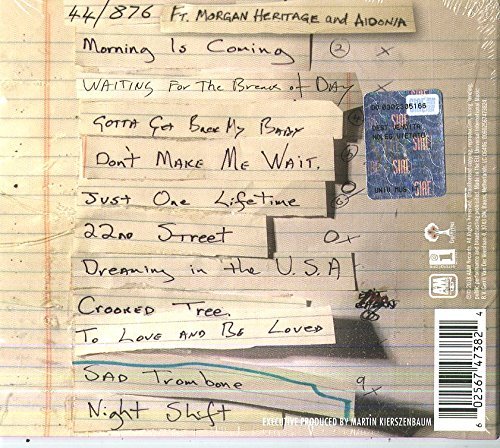 44/876 FT. MORGAN HERITAGE AND AIDONIA
Morning Is Coming
WAITING FOR THE BREAK OF DAY
GOTTA GET BACK MY BABY
DON'T MAKE ME WAIT.
Just One Lifetime
22ND Street
Dreaming in the U.S.A
CROOKED TREE.
TO LOVE AND BE LOVED
SAD TROMBONE
Night Shift
EXECUTIVE PRODUCED BY MARTIN KIERSZENBAUM
SIAE
6 02567 47382 4
A&M